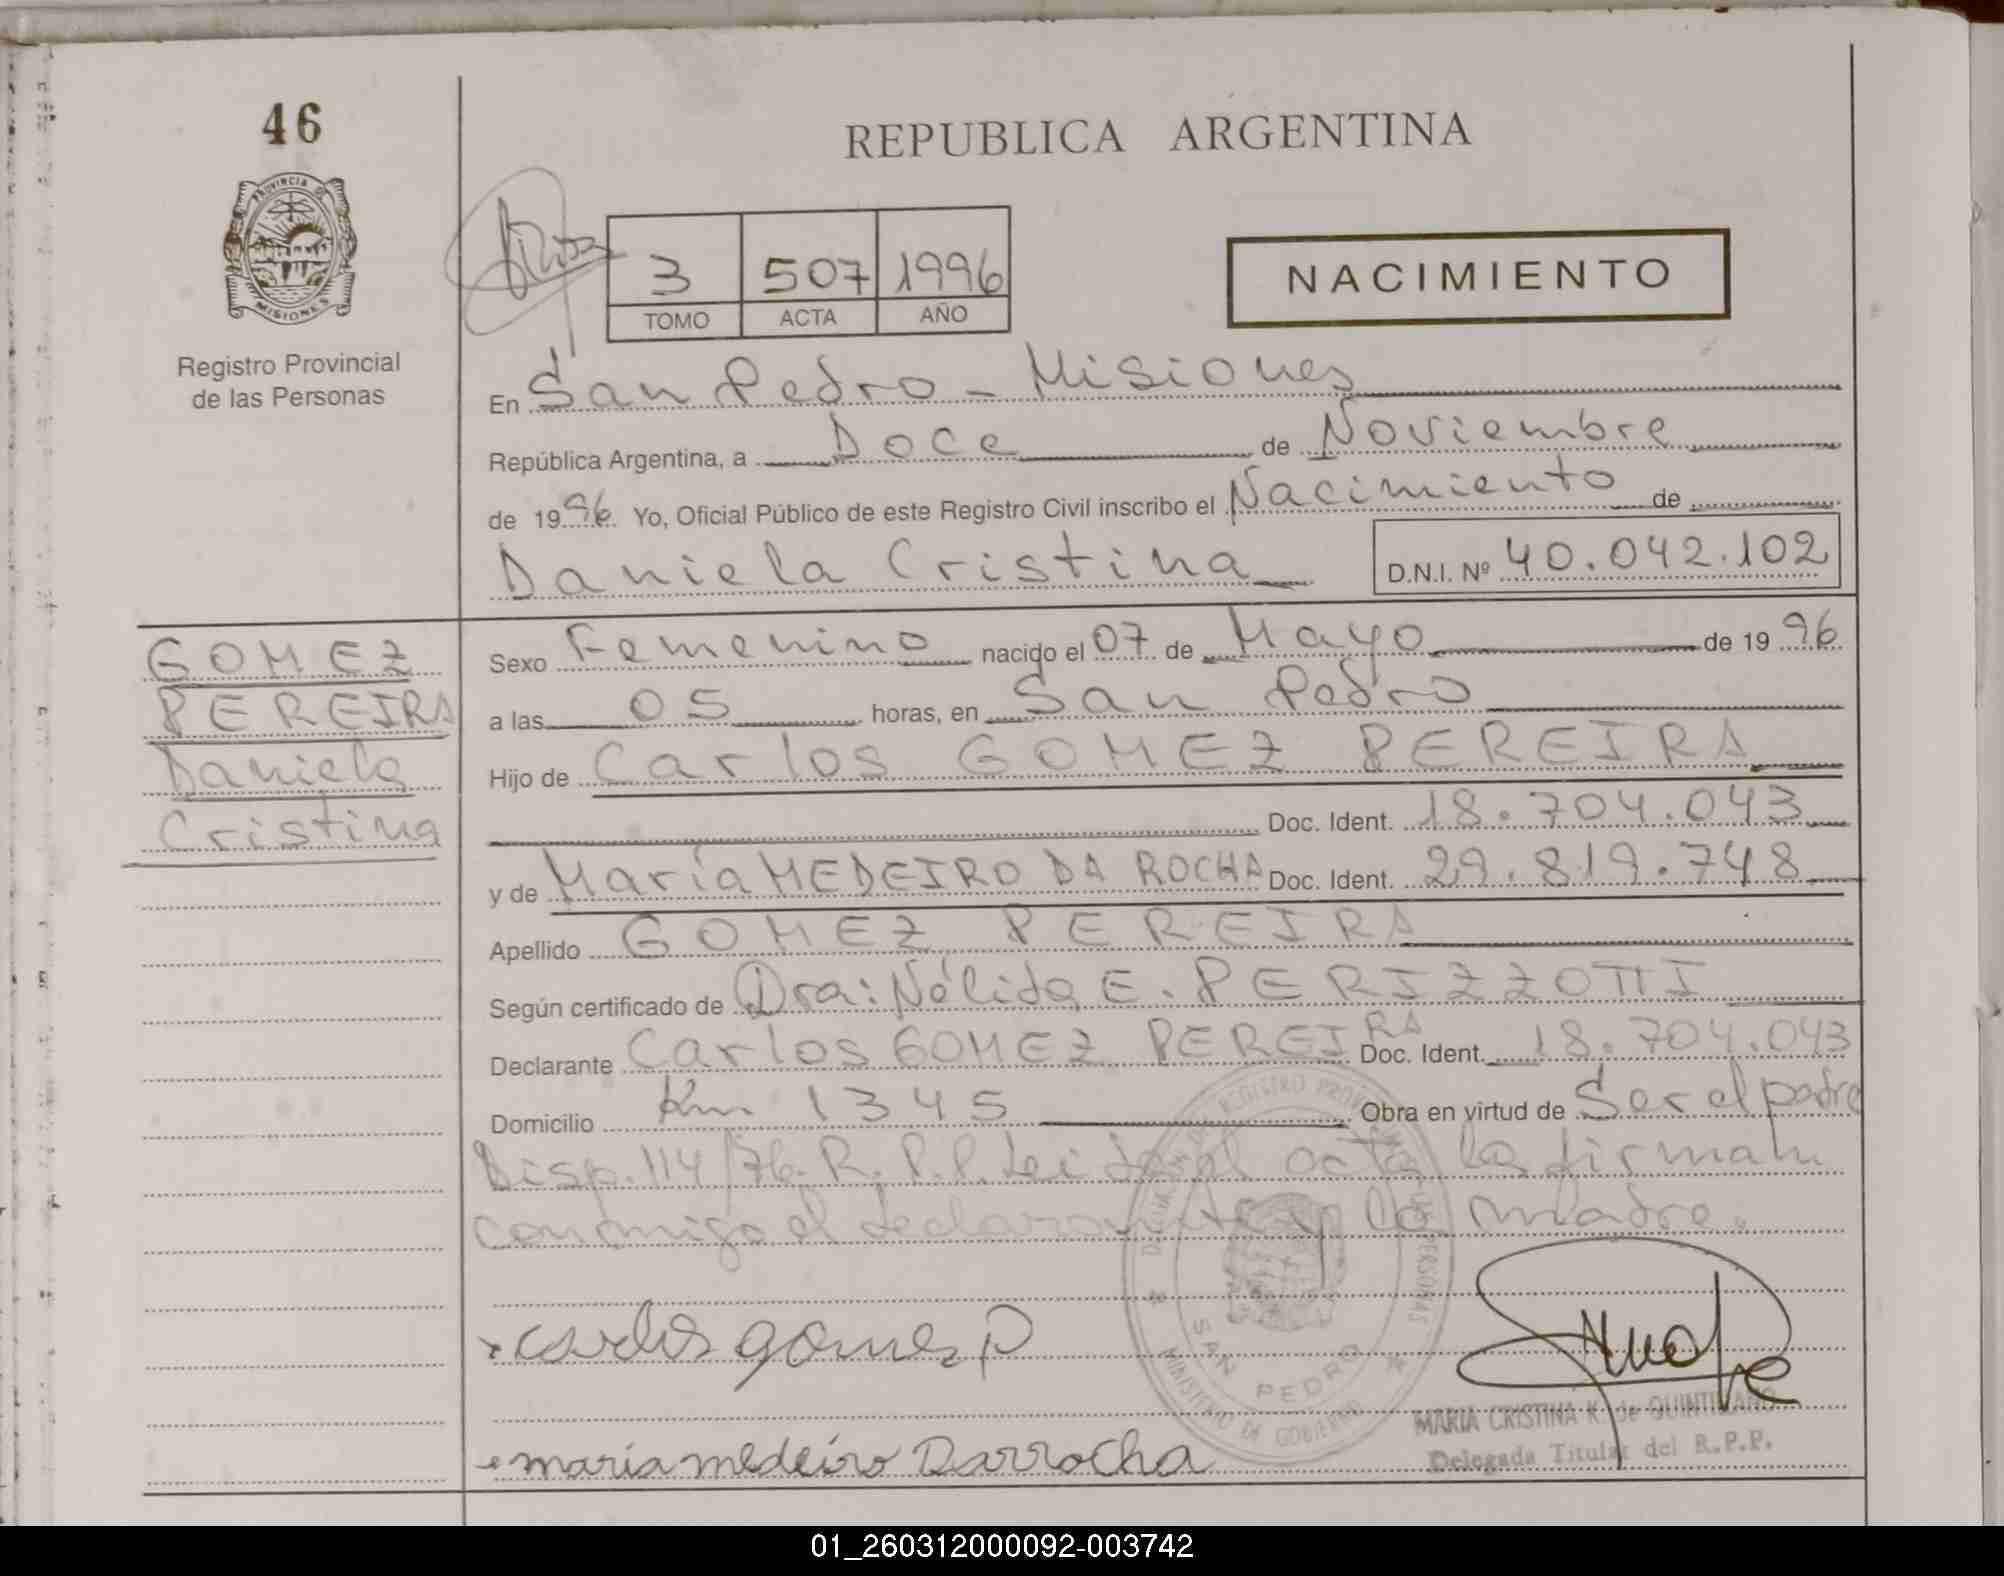 46
REPUBLICA ARGENTINA
PROVINCIA DE
MISIONES
Registro Provincial
de las Personas
3 507 1996
TOMO ACTA AÑO
NACIMIENTO
En San Pedro - Misiones
República Argentina, a Doce de Noviembre
de 1996 Yo, Oficial Público de este Registro Civil inscribo el Nacimiento de
Daniela Cristina D.N.I. Nº 40.042.102
GOMEZ
PEREIRA
Daniela
Cristina
Sexo Femenino nacido el 07 de Mayo de 1996
a las 05 horas, en San Pedro
Hijo de Carlos GOMEZ PEREIRA
Doc. Ident. 18.704.043
y de María MEDEIRO DA ROCHA Doc. Ident. 29.819.748
Apellido GOMEZ PEREIRA
Según certificado de Dra: Nélida E. PERIZZOTTI
Declarante Carlos GOMEZ PEREIRA Doc. Ident. 18.704.043
Domicilio Km 1345 Obra en virtud de Ser el padre
Disp. 114/76. R.P.P. Leida el acta la firman
conmigo el declarante y la madre.
SAN PEDRO
MINISTERIO DE GOBIERNO
carlos gomes P
maria medeiro Darrocha
MARIA CRISTINA K. de QUINTILLANO
Delegada Titular del R.P.P.
01_260312000092-003742